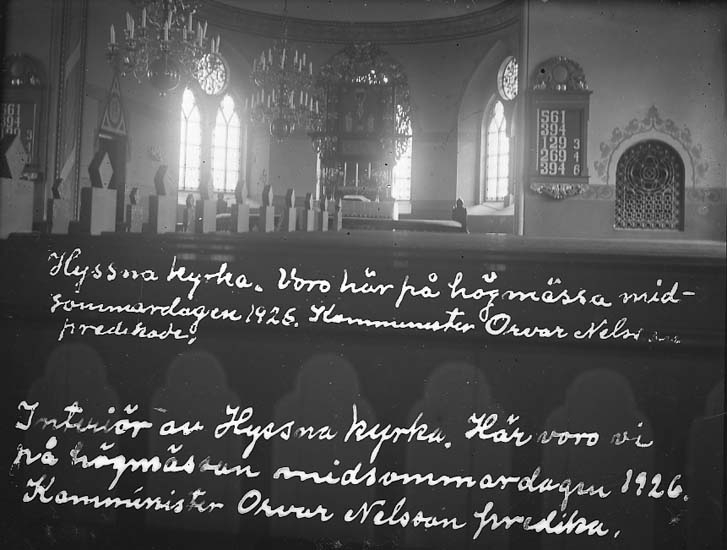 561
394
129 3
269 4
394 6
561
394
Hyssna kyrka. Voro här på högmässa mid-
sommardagen 1926. Kommunister Orvar Nelsson
predikade.
Interiör av Hyssna kyrka. Här voro vi
på högmässan midsommardagen 1926.
Kamminister Orvar Nelsson predika.